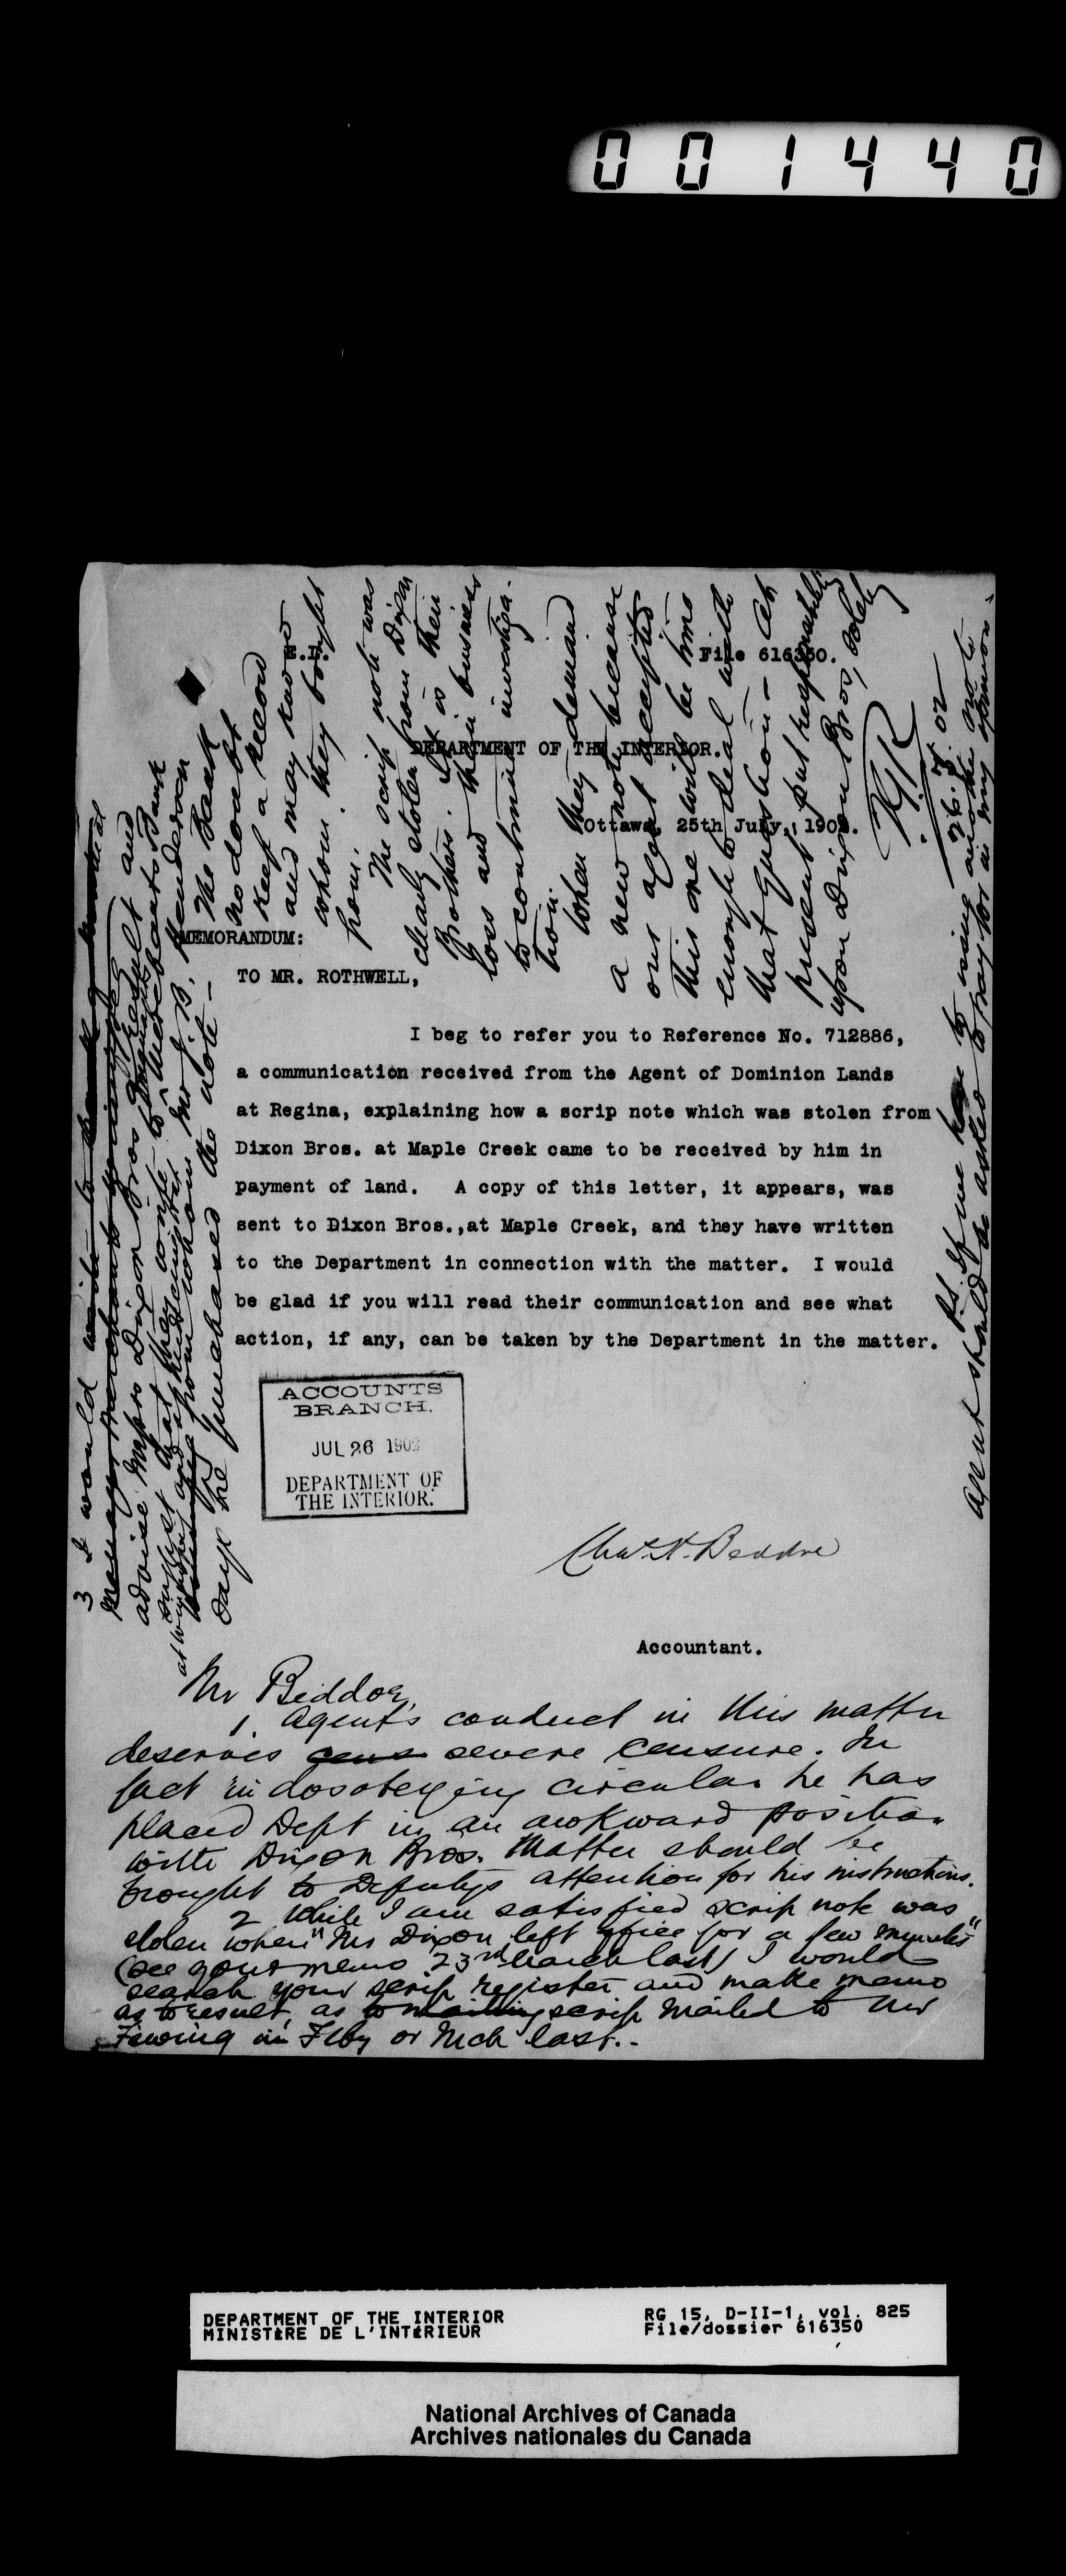 001440
E.D.
File 616350.
DEPARTMENT OF THE INTERIOR.
Ottawa, 25th July, 1902.
MEMORANDUM:
TO MR. ROTHWELL,
I beg to refer you to Reference No. 712886,
a communication received from the Agent of Dominion Lands
at Regina, explaining how a scrip note which was stolen from
Dixon Bros. at Maple Creek came to be received by him in
payment of land. A copy of this letter, it appears, was
sent to Dixon Bros.,at Maple Creek, and they have written
to the Department in connection with the matter. I would
be glad if you will read their communication and see what
action, if any, can be taken by the Department in the matter.
ACCOUNTS
BRANCH.
JUL 26 1902
DEPARTMENT OF
THE INTERIOR.
Chas. H. Beddoe
Accountant.
Mr Beddoe,
1. Agent's conduct in this matter
deserves cens severe censure. In
fact in disobeying circular he has
placed Dept in an awkward position
with Dixon Bros. Matter should be
brought to Deputy's attention for his instructions.
2 While I am satisfied scrip note was
stolen when "Mr Dixon left office for a few minutes"
(see your memo 23rd March last) I would
search your scrip register and make memo
as to result, as to mailing scrip mailed to Mr
Fewing in Feby or Mch last.-
3 I would write to the Bank
Manager
advise Messrs Dixon Bros of result and
suggest that they write to Merchants Bank
at
from whom Mr J. B. Henderson
says he purchased the note -
The Bank
no doubt
keep a record
and may know
whom they bought
from.
The scrip note was
clearly stolen from Dixon
Brothers. It is their
loss and their business
to continue investiga-
tion.
When they demand
a new note because
our agent accepted
this one it will be time
enough to deal with
that question - At
present put responsibility
upon Dixon Bros, solely
26.7.02
P.S. If we have to issue another note
agent should be asked to pay for it in my opinion
DEPARTMENT OF THE INTERIOR
MINISTÈRE DE L'INTÉRIEUR
RG 15, D-II-1, vol. 825
File/dossier 616350
National Archives of Canada
Archives nationales du Canada